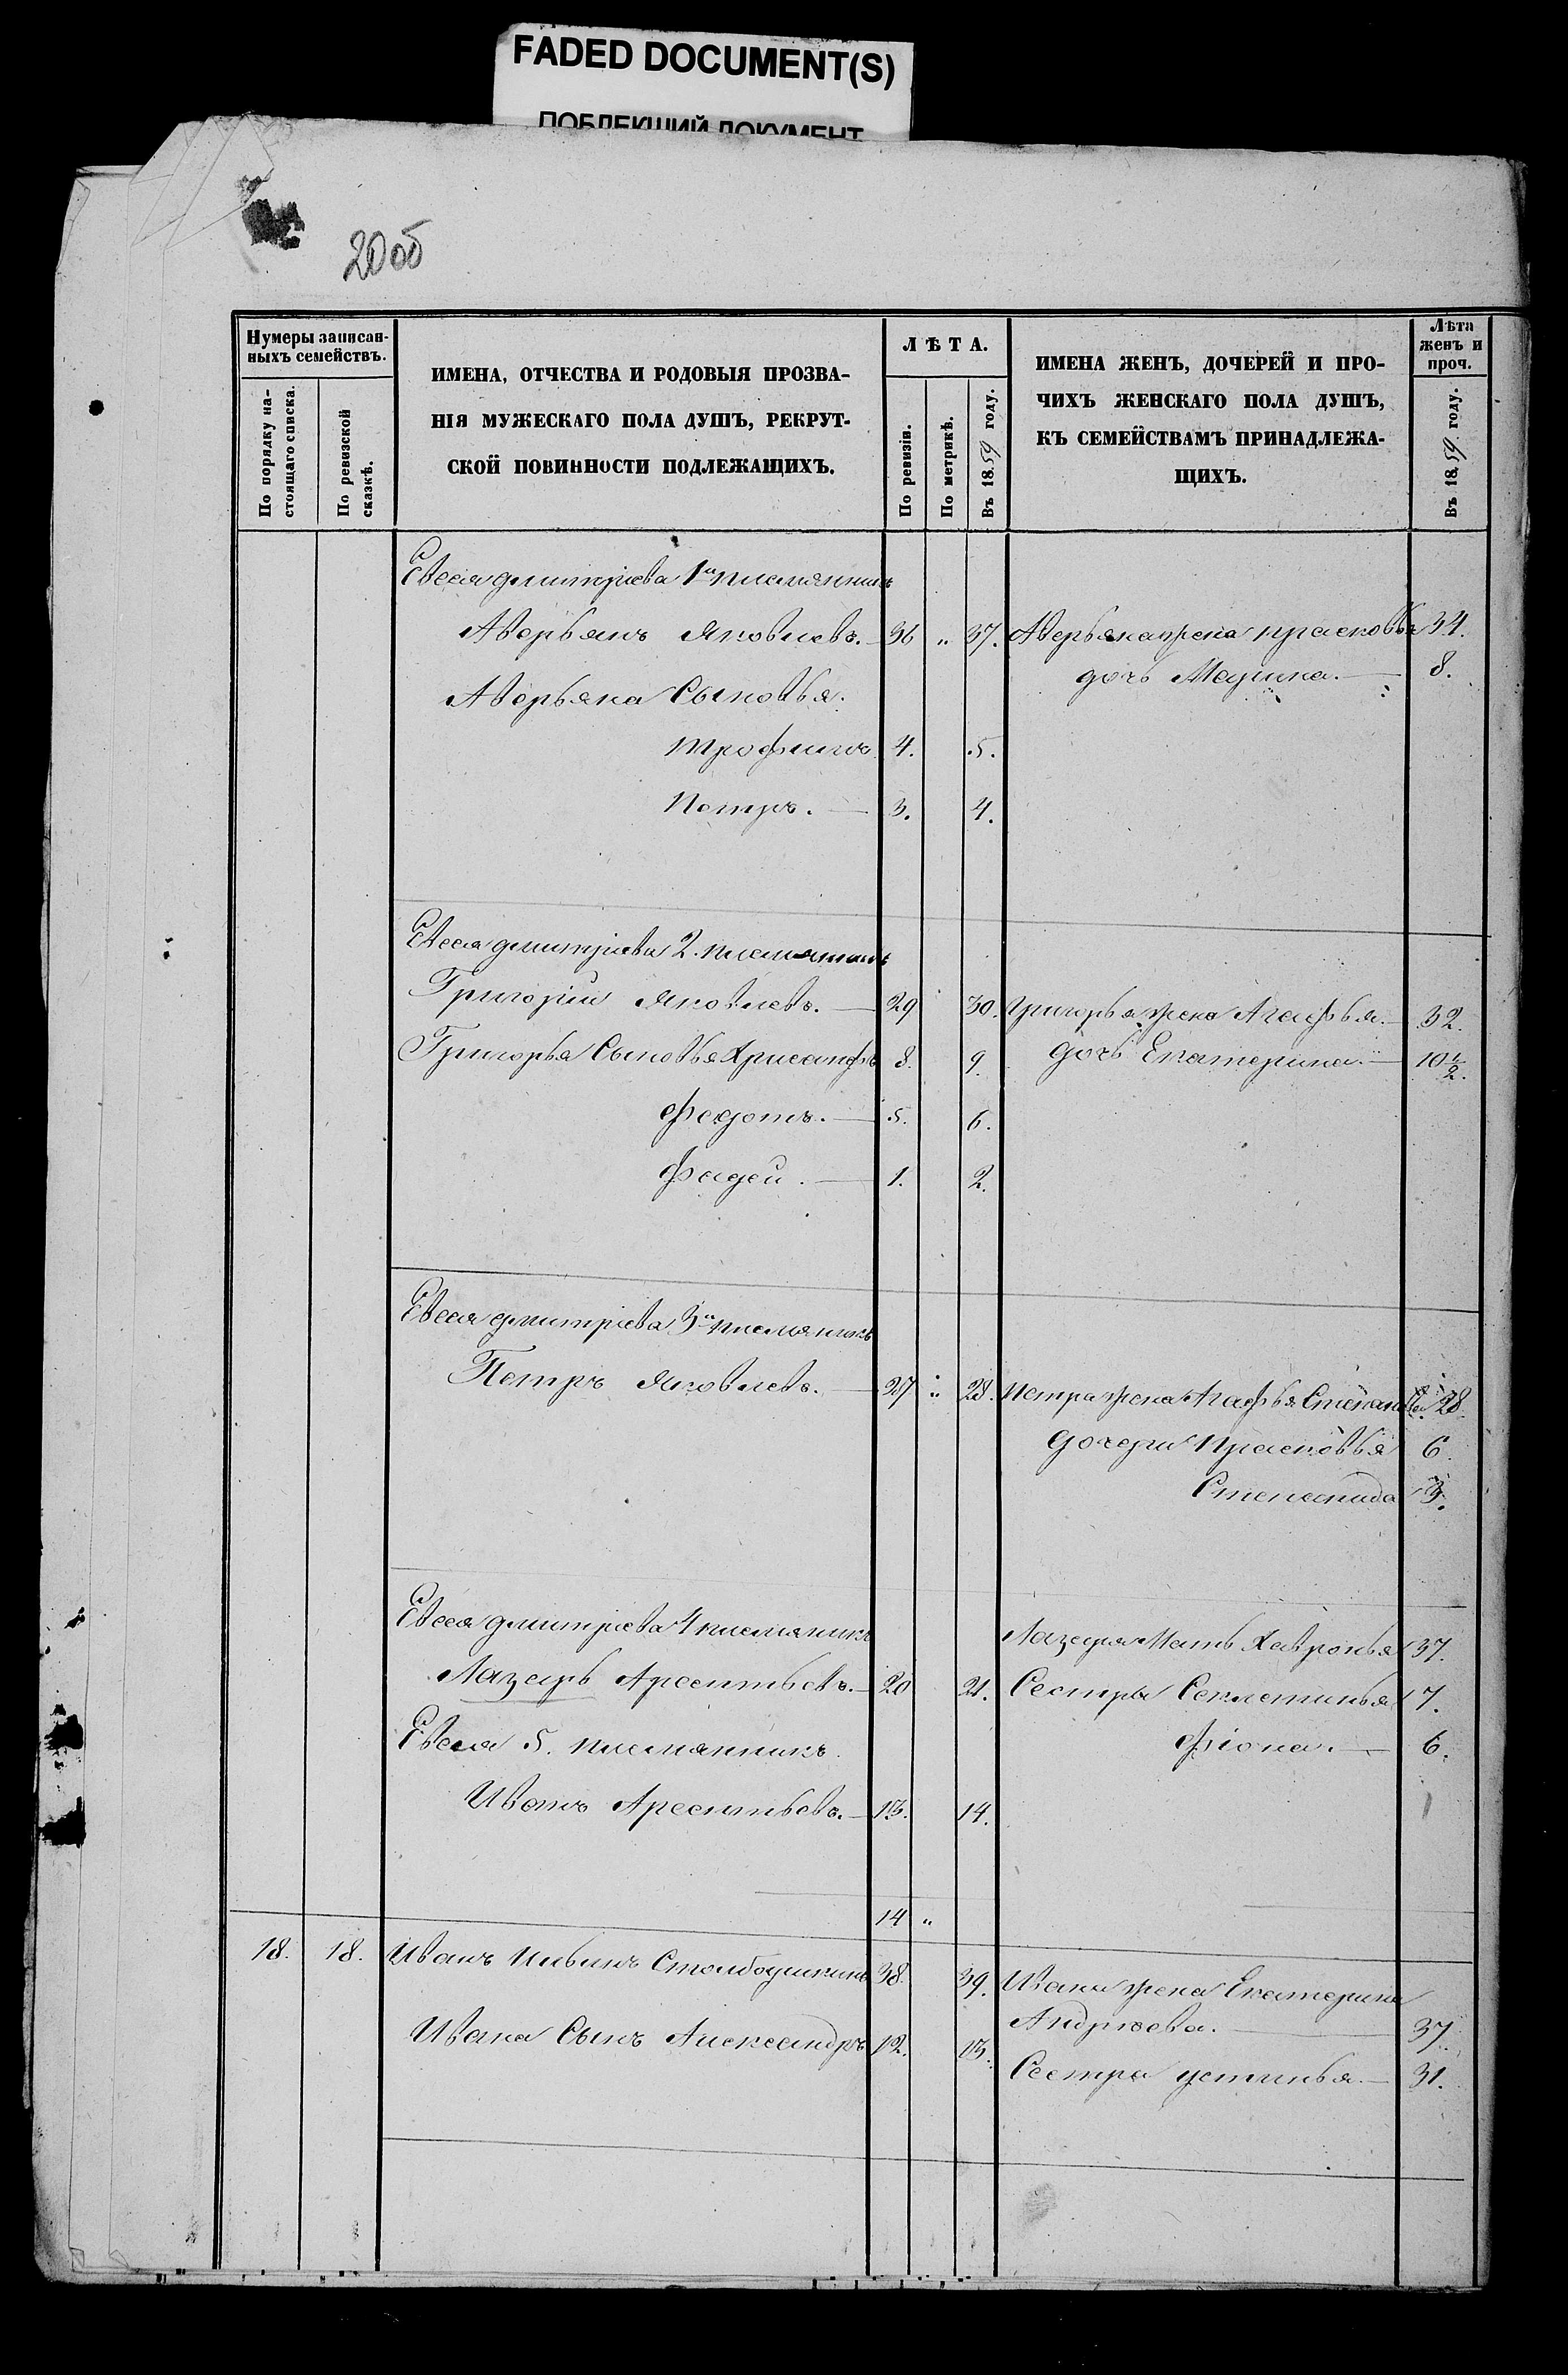 FADED DOCUMENT(S)
ПОБЛЕКШИЙ ДОКУМЕНТ
20об
Нумеры записан-
ныхъ семействъ.
По порядку на-
стоящаго списка.
По ревизской
сказкѣ.
ИМЕНА, ОТЧЕСТВА И РОДОВЫЯ ПРОЗВА-
НІЯ МУЖЕСКАГО ПОЛА ДУШЪ, РЕКРУТ-
СКОЙ ПОВИННОСТИ ПОДЛЕЖАЩИХЪ.
ЛѢТА.
По ревизіи.
По метрикѣ.
Въ 1859 году.
ИМЕНА ЖЕНЪ, ДОЧЕРЕЙ И ПРО-
ЧИХЪ ЖЕНСКАГО ПОЛА ДУШЪ,
КЪ СЕМЕЙСТВАМЪ ПРИНАДЛЕЖА-
ЩИХЪ.
Лѣта
женъ и
проч.
Въ 1859 году.
Евсея дмитріева 1й племянникъ
Аверьянъ Яковлевъ. 36 „ 37. Аверьяна жена прасковья 34.
дочь Марина. 8.
Аверьяна Сыновья.
трофимъ 4. 5.
Петръ. 3. 4.
Евсея дмитріева 2. племянникъ
Григорій Яковлевъ. 29 30. Григорья жена Агафья. 32.
Григорья Сыновья Хрисанфъ 8. 9. дочь Екатерина. 10½.
федотъ. 5. 6.
фадей. 1. 2.
Евсея дмитріева 3й племяникъ
Петръ Яковлевъ. 27 „ 28. Петра жена Агафья Степанова 28.
дочери Прасковья 6.
Степанида 3.
Евсея дмитріева 4 племяникъ
Лазаря Мать Хавронья 37.
Лазарь Арсентьевъ. 20 21. Сестры Секлетинья 7.
Евсея 5. племянникъ.
фіона. 6.
Иванъ Арсентьевъ. 13. 14.
14 „
18. 18. Иванъ Ильинъ Столбоушкинъ 38. 39. Ивана жена Екатерина
Андреева. 37.
Ивана Сынъ Александръ 12. 13.
Сестра устинья. 31.